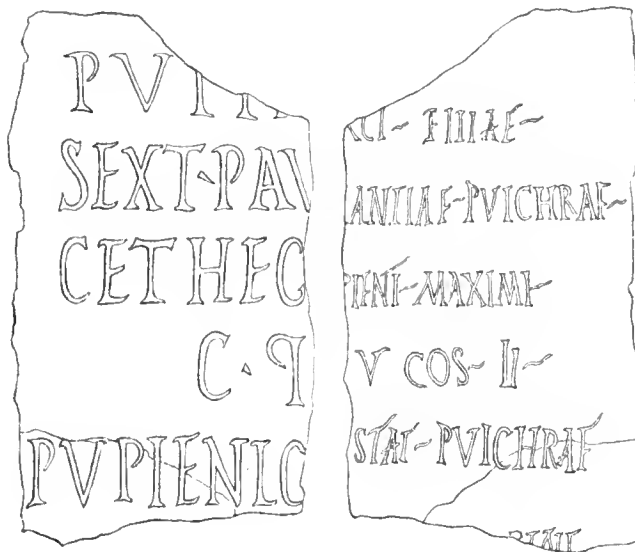 PV
SEXT·PAV
CETHEG
C · ꟼ
PVPIENIC
FILIAE
ANTIAE PVLCHRAE
PIENI MAXIMI
V COS II
STAE PVLCHRAE